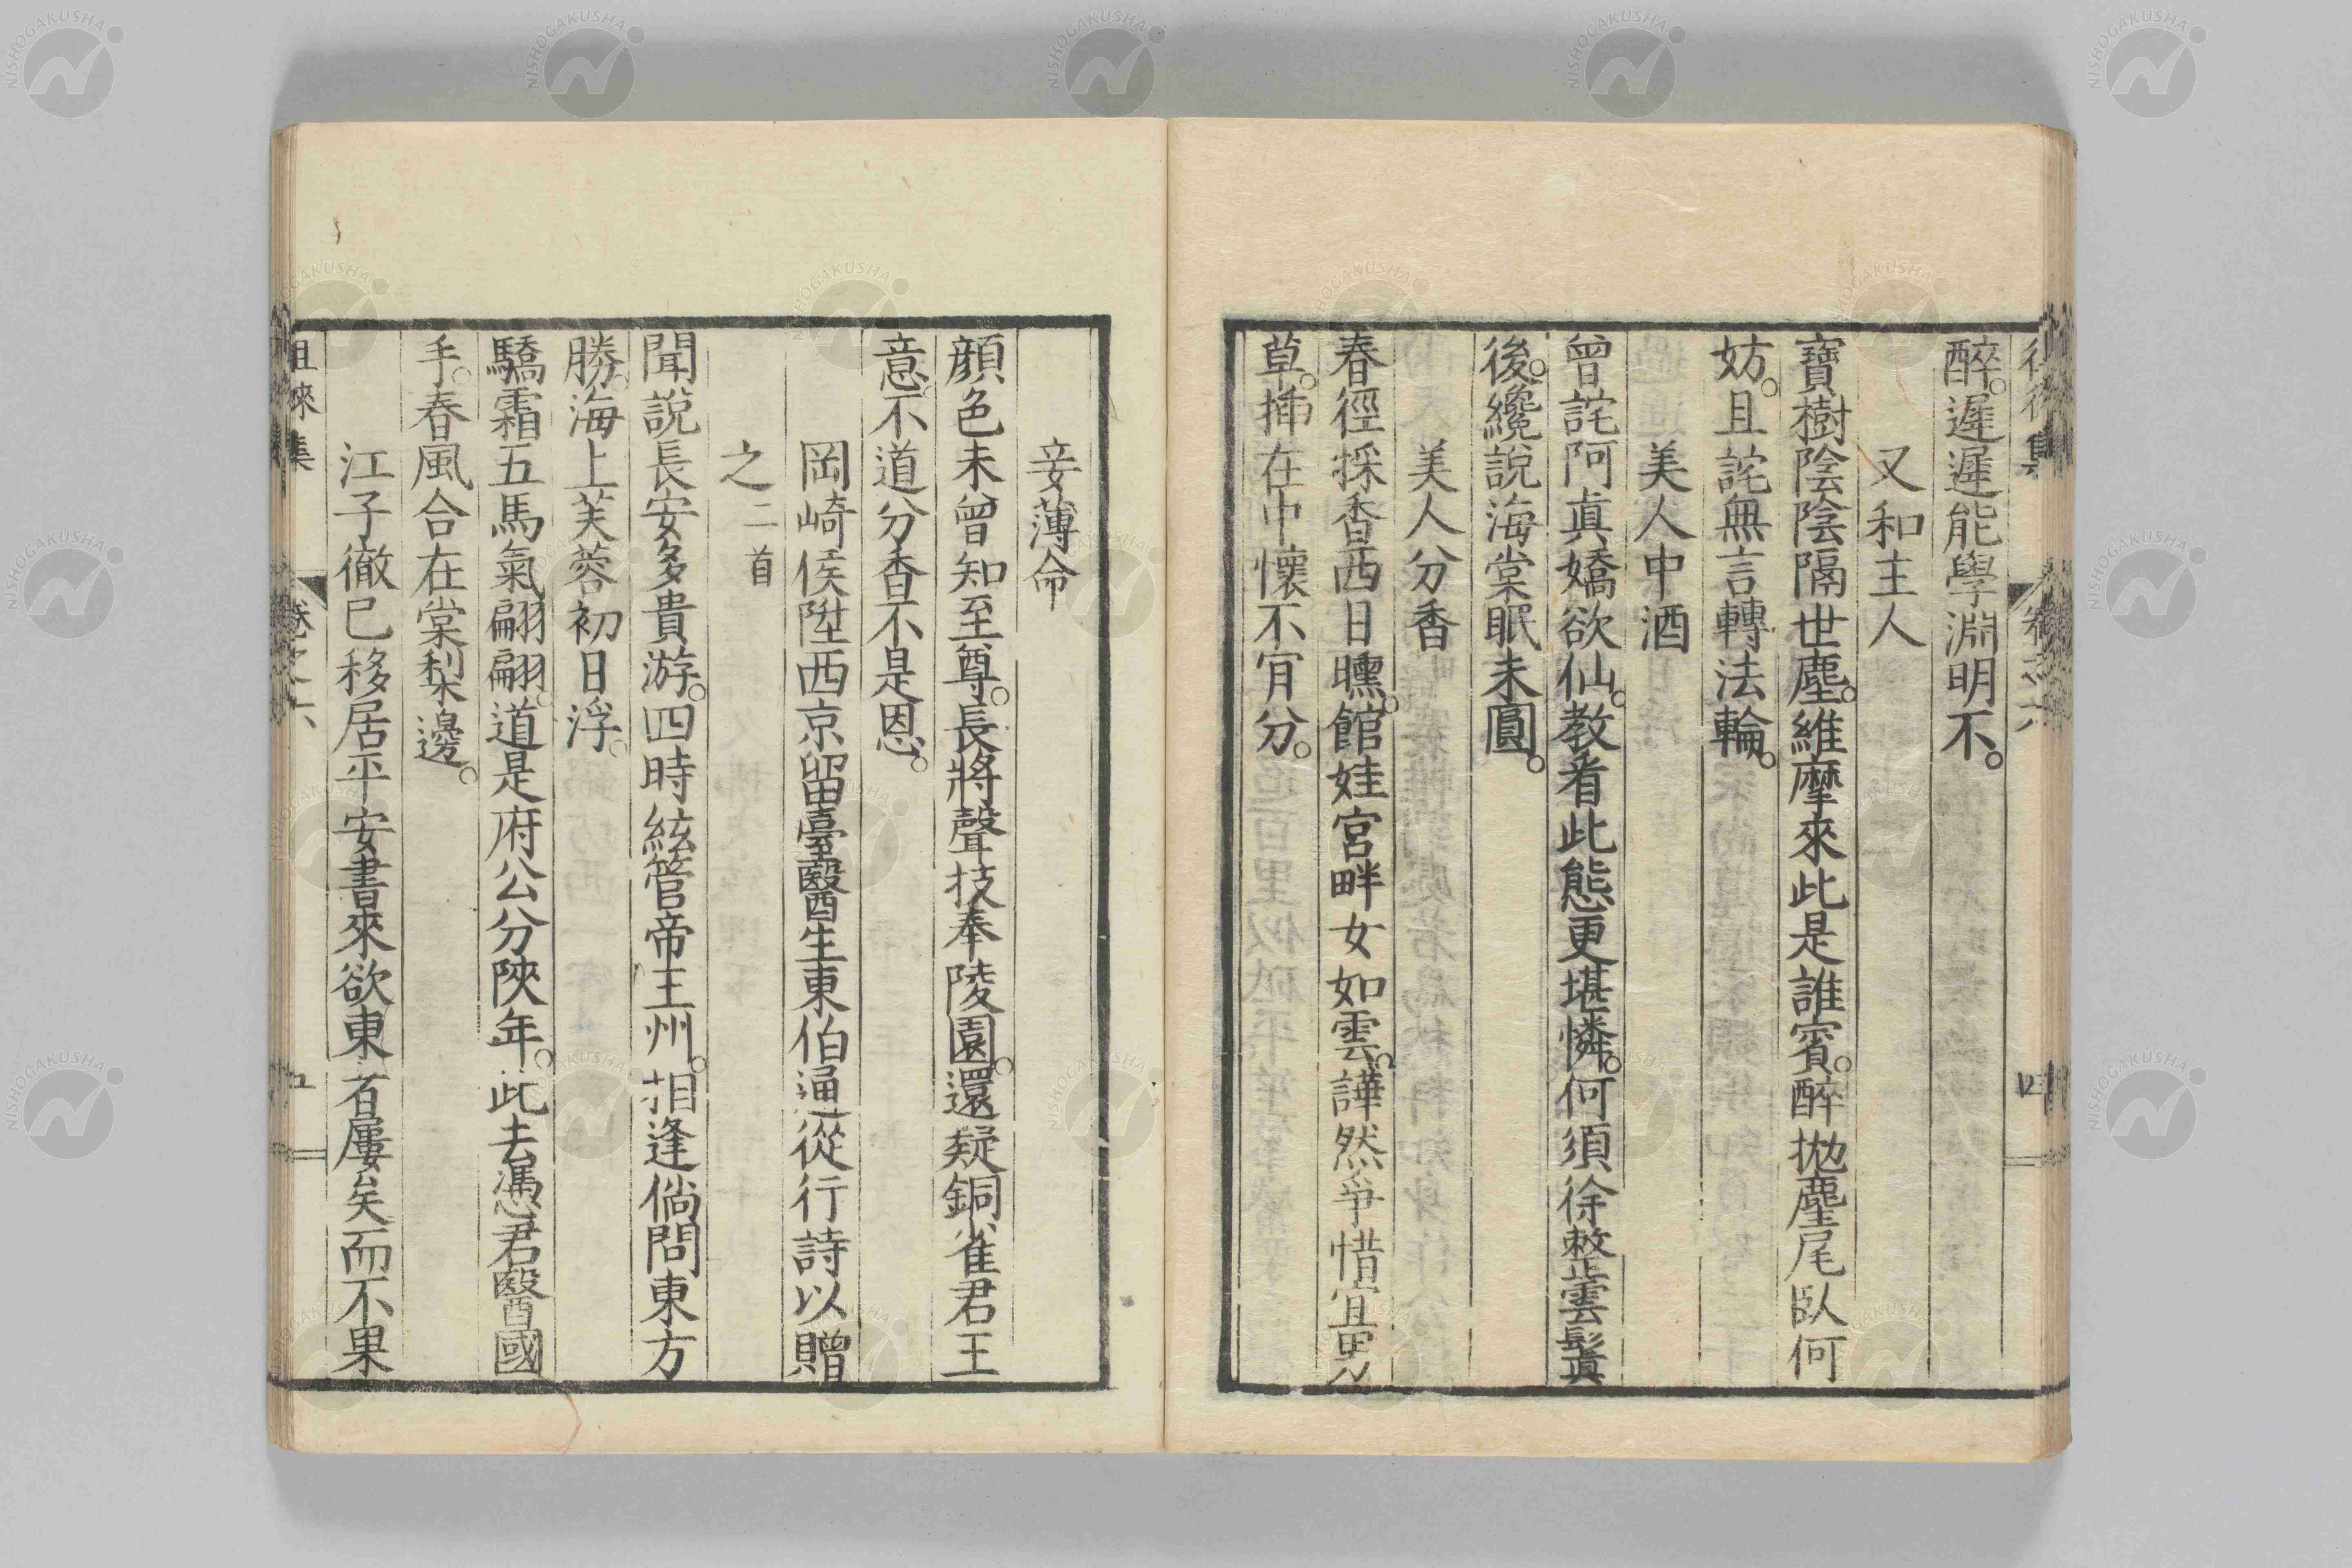 醉。遲遲能學淵明不。
又和主人
寶樹陰陰隔世塵。維摩來此是誰賓。醉拋麈尾臥何
妨。且詫無言轉法輪。
美人中酒
曾詫阿眞嬌欲仙。教看此態更堪憐。何須徐整雲鬟
後。纔說海棠眠未圓。
美人分香
春徑採香西日曛。館娃宮畔女如雲。譁然爭惜宜男
草。揷在中懷不肯分。
妾薄命
顏色未曾知至尊。長將聲技奉陵園。還疑銅雀君王
意。不道分香不是恩。
岡崎侯陞西京留臺醫生東伯逼從行詩以贈
之二首
聞說長安多貴游。四時絃管帝王州。相逢倘問東方
勝。海上芙蓉初日浮。
驕霜五馬氣翩翩。道是府公分陝年。此去憑君醫國
手。春風合在棠梨邊。
江子徹已移居平安書來欲東者屢矣而不果
徂徠集 卷之六 五
NISHOGAKUSHA